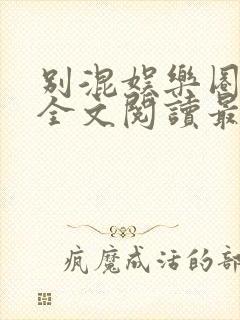 别混娱樂圈
全文閱讀最
疯魔成活的部